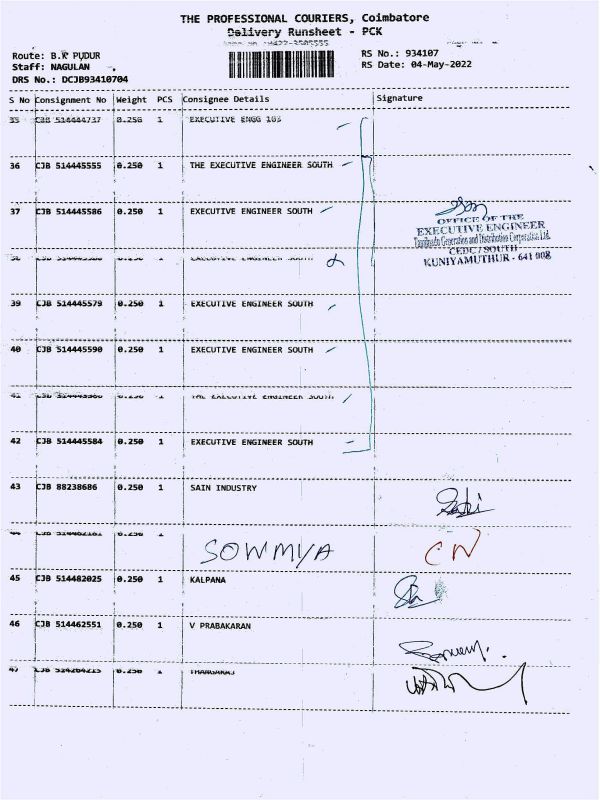 THE PROFESSIONAL COURIERS, Coimbatore
Delivery Runsheet - PCK
Route: B.K PUDUR
RS No.: 934107
Staff: NAGULAN
RS Date: 04-May-2022
DRS No.: DCJB93410704
S No Consignment No Weight PCS Consignee Details Signature
35 CJB 514444737 0.250 1 EXECUTIVE ENGG 103
36 CJB 514445555 0.250 1 THE EXECUTIVE ENGINEER SOUTH
37 CJB 514445586 0.250 1 EXECUTIVE ENGINEER SOUTH
OFFICE OF THE
EXECUTIVE ENGINEER
Tamilnadu Generation and Distribution Corporation Ltd.
CEDC / SOUTH
KUNIYAMUTHUR - 641 008
38 EXECUTIVE ENGINEER SOUTH
39 CJB 514445579 0.250 1 EXECUTIVE ENGINEER SOUTH
40 CJB 514445590 0.250 1 EXECUTIVE ENGINEER SOUTH
41 0.250 1 THE EXECUTIVE ENGINEER SOUTH
42 CJB 514445584 0.250 1 EXECUTIVE ENGINEER SOUTH
43 CJB 88238686 0.250 1 SAIN INDUSTRY
44 0.250 1 SOWMYA CN
45 CJB 514482025 0.250 1 KALPANA
46 CJB 514462551 0.250 1 V PRABAKARAN
47 0.250 1 THANGARAJ